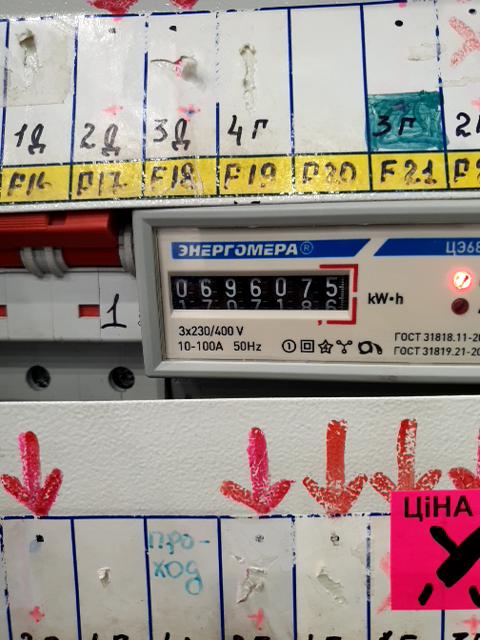 1Д 2Д 3Д 4Г 3Г
F16 F17 F18 F19 F20 F21
ЭНЕРГОМЕРА® ЦЭ68
0696075
kW•h
1
3x230/400 V
10-100A 50Hz
ГОСТ 31818.11-20
ГОСТ 31819.21-20
ЦІНА
про-
ход